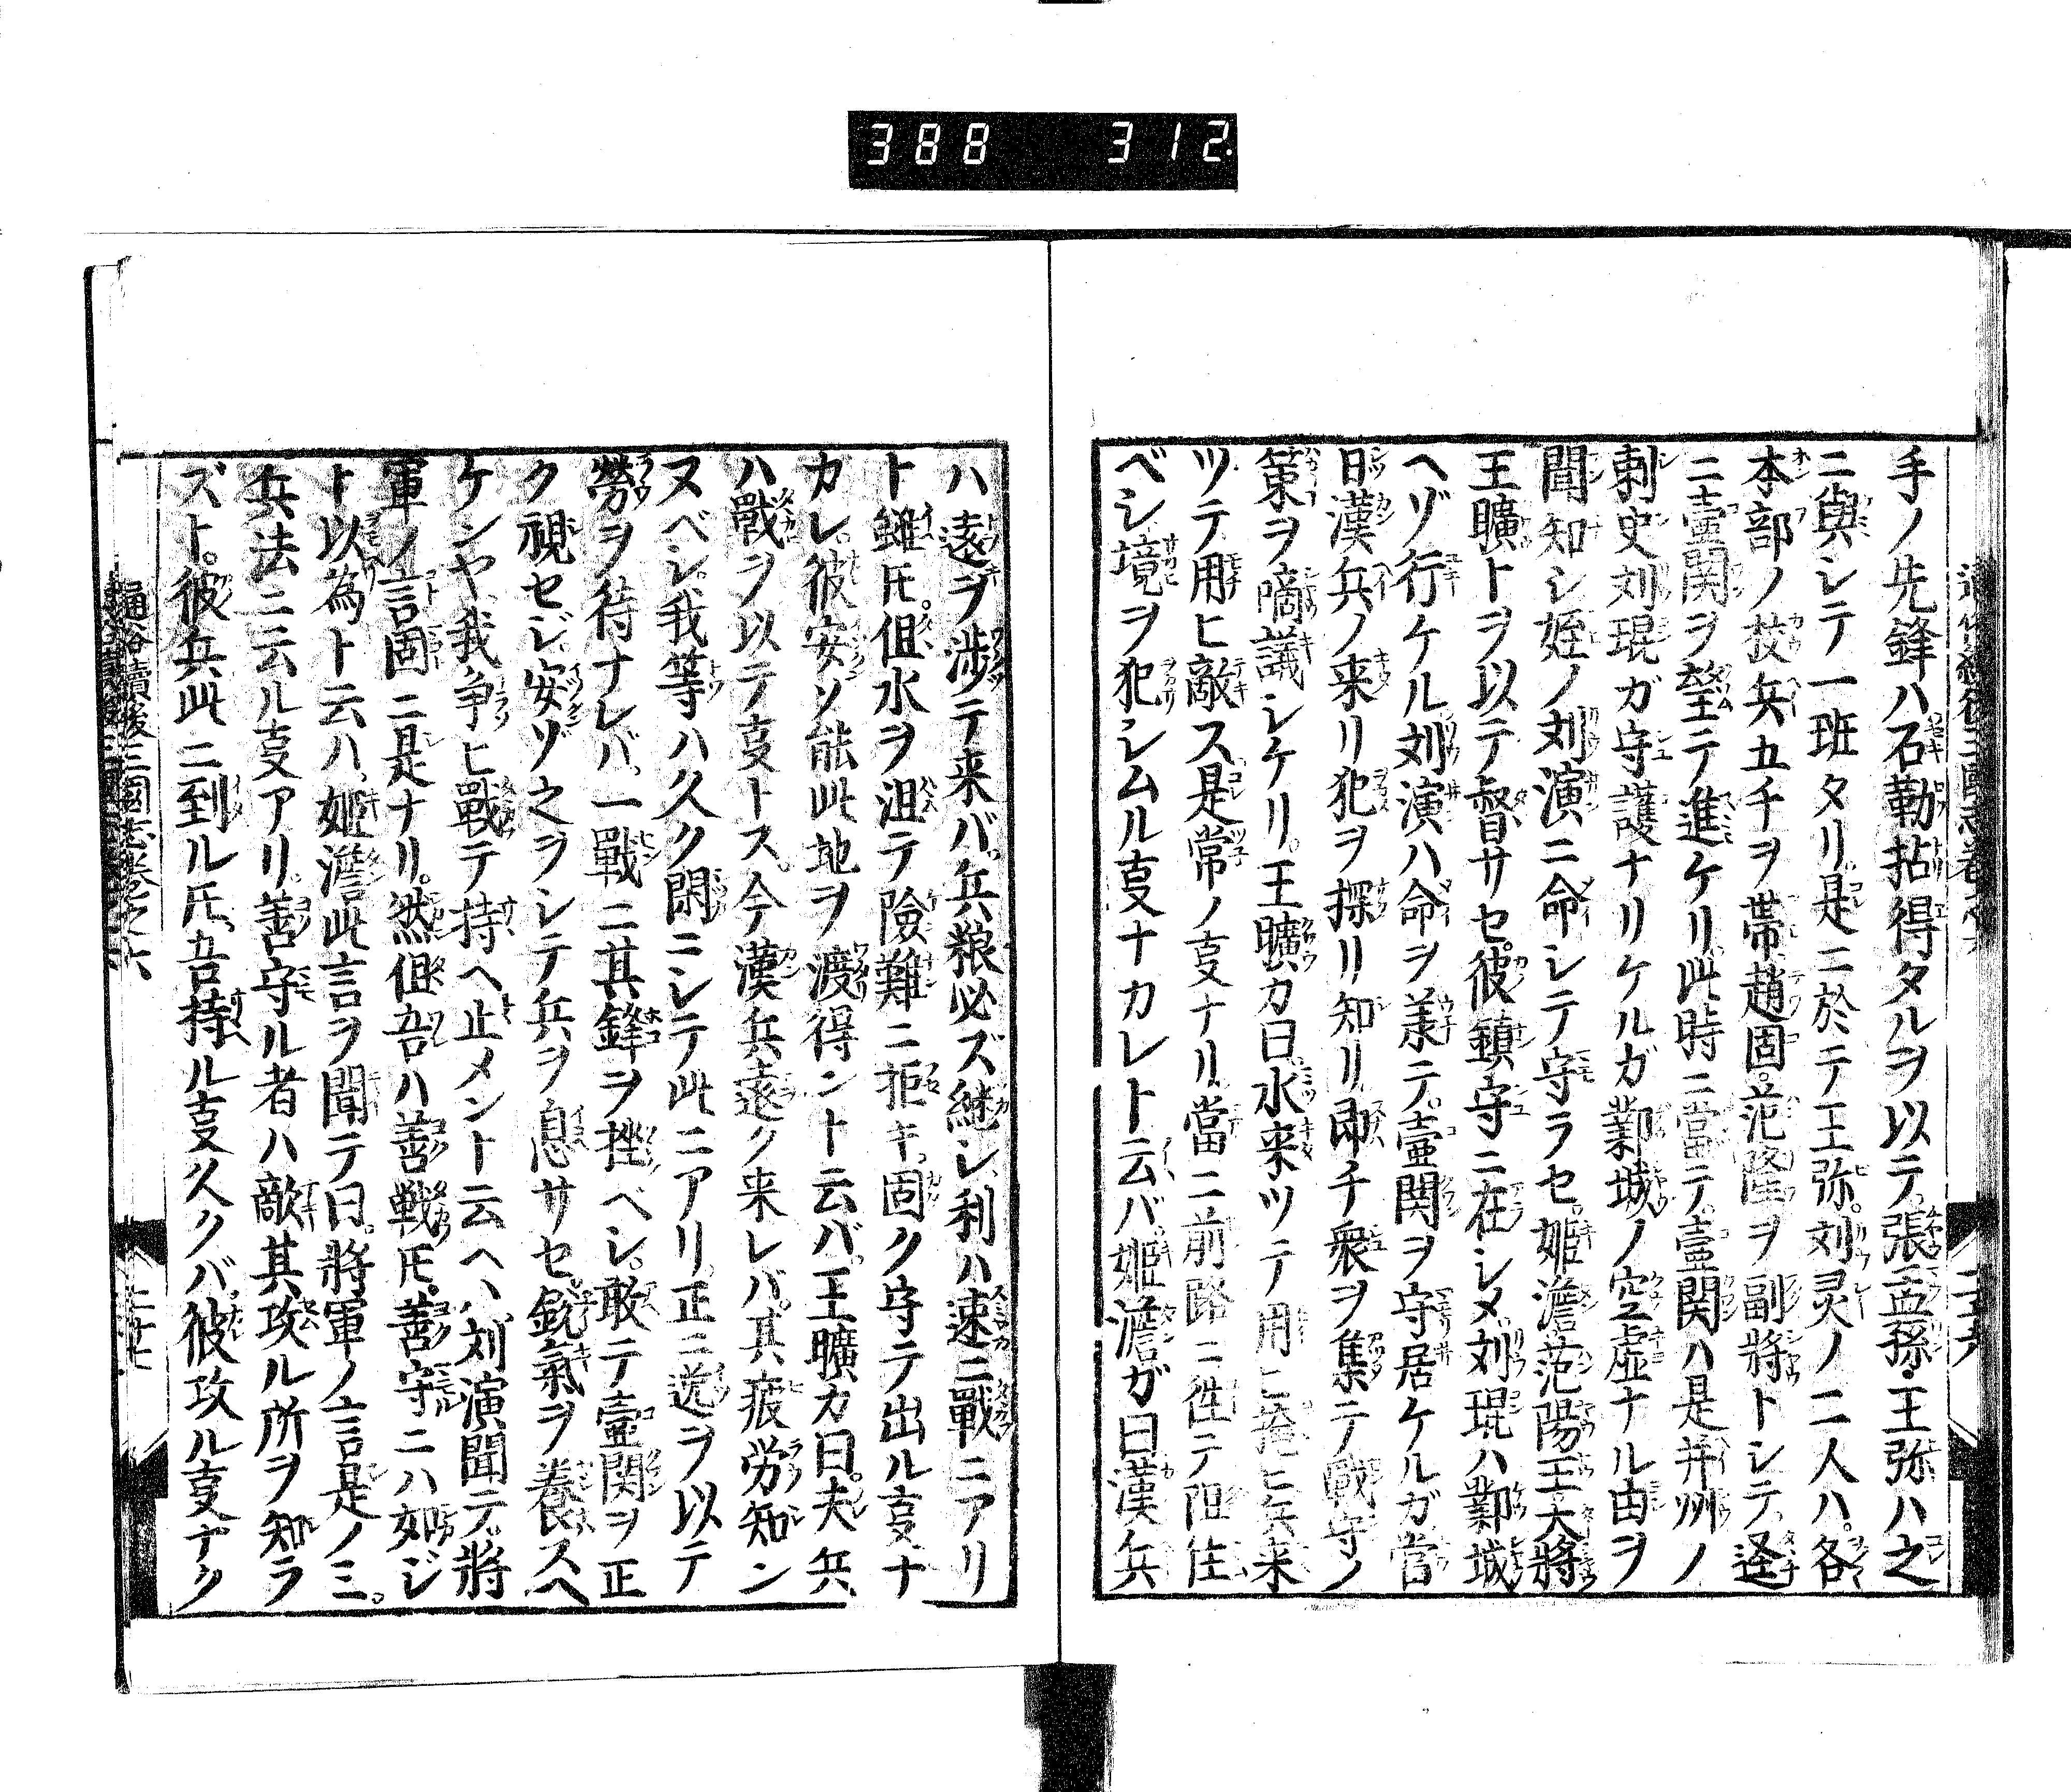 388 312
手ノ先鋒ハ石勒拈得タルヲ以テ張孟孫・王弥ハ之
ニ與シテ一班タリ是ニ於テ王弥刘灵ノ二人ハ各
本部ノ技兵五千ヲ帯趙固范隆ヲ副將トシテ迳
ニ壷関ヲ望テ進ケリ此時ニ當テ壷関ハ是并州ノ
刺史刘琨ガ守護ナリケルガ鄴城ノ空虚ナル由ヲ
聞知シ姪ノ刘演ニ命シテ守ラセ姬澹范陽王大將
王曠トヲ以テ督サセ彼鎮守ニ在シメ刘琨ハ鄴城
ヘゾ行ケル刘演ハ命ヲ羕テ壷関ヲ守居ケルガ當
日漢兵ノ来リ犯ヲ探リ知リ即チ衆ヲ集テ戰守ノ
策ヲ啇議シケリ王曠カ曰水来ツテ用ヒ掩ヒ兵来
ツテ用ヒ敵ス是常ノ叓ナリ當ニ前路ニ徃テ阻住
ベシ境ヲ犯シムル叓ナカレト云バ姬澹ガ曰漢兵
ハ遠ヲ涉テ来バ兵粮必ズ継シ利ハ速ニ戰ニアリ
ト雖㐧但水ヲ沮テ險難ニ拒キ固ク守テ出ル叓ナ
カレ彼安ソ能此地ヲ渡得ント云バ王曠カ曰夫兵
ハ戰ヲ以テ叓トス今漢兵遠ク来レバ其疲労知ン
ヌベシ我等ハ久ク閑ニシテ此ニアリ正ニ逸ヲ以テ
勞ヲ待ナレバ一戰ニ其鋒ヲ挫ベシ敢テ壷関ヲ正
ク視セジ安ゾ之ヲシテ兵ヲ息サセ鋭氣ヲ養スヘ
ケンヤ我争ヒ戰テ持ヘ止メント云ヘバ刘演聞テ將
軍ノ言固ニ是ナリ然但吾ハ善戦𪜈善守ニハ如ジ
ト以為ト云ハ姬澹此言ヲ聞テ曰將軍ノ言是ノミ
兵法ニ云ル叓アリ善守ル者ハ敵其攻ル所ヲ知ラ
ズト彼兵此ニ到ル𪜈吾持ル叓久クバ彼攻ル叓ナク
通俗續後三國志巻之六